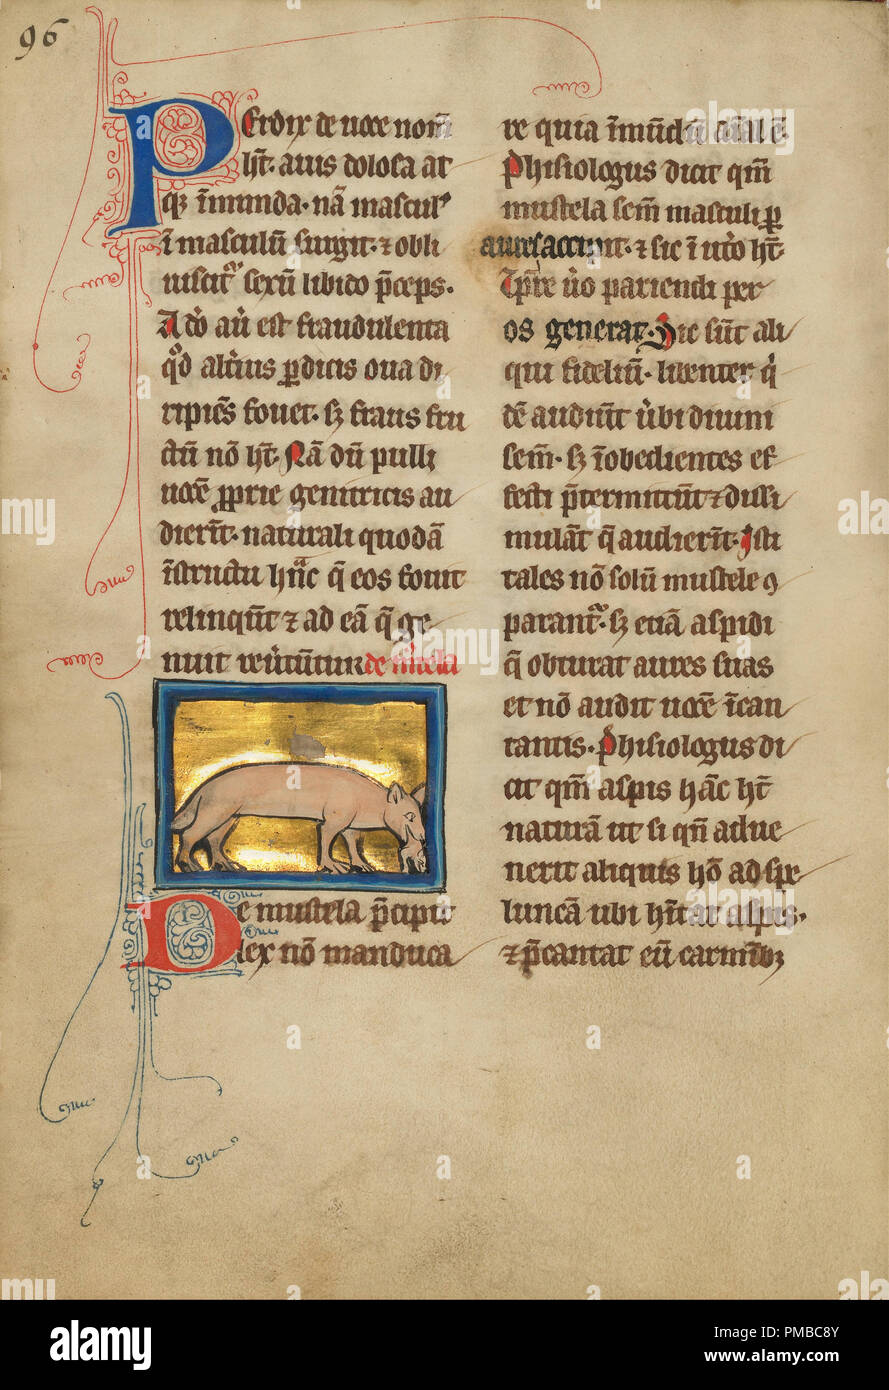 96
Perdix de uoce nom̄
h̄t. auis dolosa at
qꝫ īmunda. nā masculꝰ
ī masculū surgit. ⁊ obli
uiscit᷑ sexū libido p̄ceps.
Adō aū est fraudulenta
qͦd alt̾ius ꝑdicis oua di
ripiēs fouet. sꝫ fraus fru
ctū nō h̄t. Nā dū pulli
uocē ꝓprie genitricis au
dierīt. naturali quodā
īstructu hāc q̄ eos fouit
relinqūt ⁊ ad eā q̄ ge
nuit reūtūtur de m̄tela
De mustela p̄cipit
lex nō manduca
re quia īmūdū aīal ē.
Phisiologus dicit qm̄
mustela sem̄ masculi ꝑ
aures accipit. ⁊ sic ī utō h̄t.
Ip̄re ūo pariendi per
os generat. Sic sūt ali
qui fideliū. libenter q̇
dē audiūt ūbi diuini
sem̄. sꝫ īobedientes ef
fecti p̄termittūt ⁊ dissi
mulāt q̄ audierīt. Isti
tales nō solū mustele ꝯ
parant᷑. sꝫ etiā aspidi
q̄ obturat aures suas
et nō audit uocē īcan
tantis. Phisiologus di
cit qm̄ aspis hāc h̄t
naturā ut si qn̄ adue
nerit aliquis hō ad spe
luncā ubi h̄itat aspis.
⁊ p̄cantat eū carmībꝫ
alamy
PMBC8Y
www.alamy.com